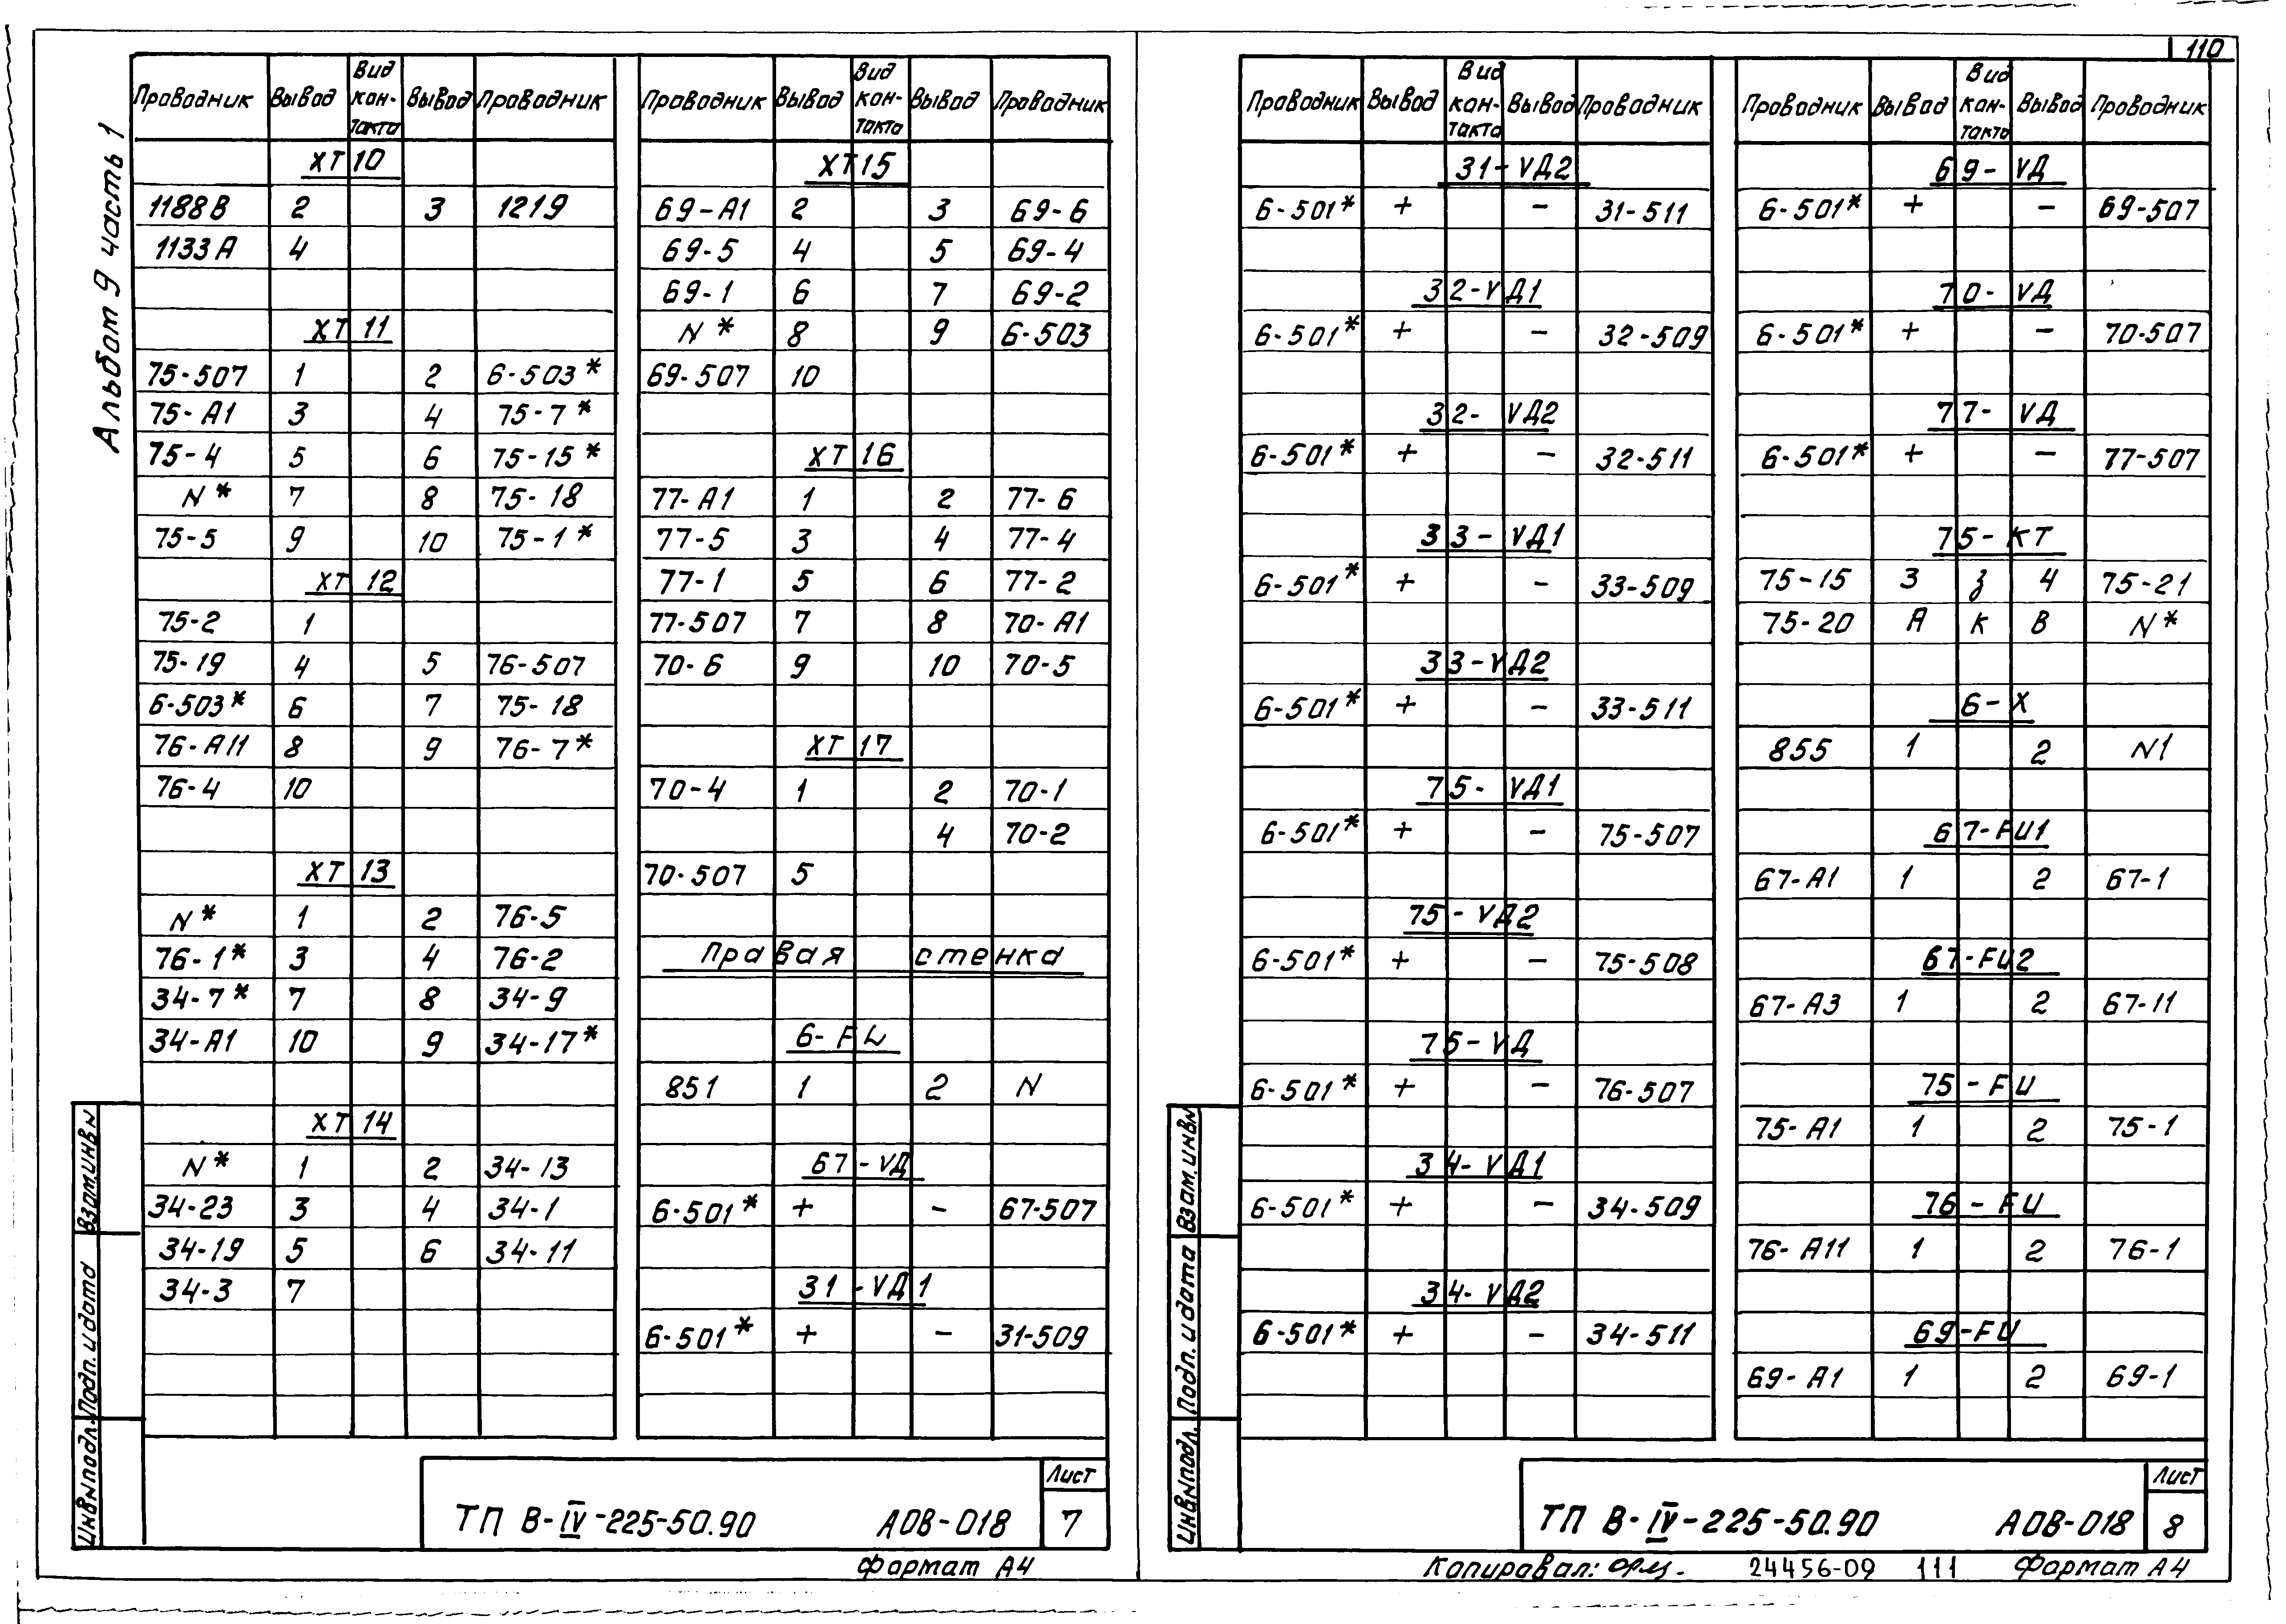 110
Альбом 9 часть 1
Проводник Вывод Вид кон-такта Вывод Проводник
ХТ10
1188В 2 3 1219
1133А 4
ХТ11
75-507 1 2 6-503*
75-А1 3 4 75-7*
75-4 5 6 75-15*
N* 7 8 75-18
75-5 9 10 75-1*
ХТ12
75-2 1
75-19 4 5 76-507
6-503* 6 7 75-18
76-А11 8 9 76-7*
76-4 10
ХТ13
N* 1 2 76-5
76-1* 3 4 76-2
34-7* 7 8 34-9
34-А1 10 9 34-17*
ХТ14
N* 1 2 34-13
34-23 3 4 34-1
34-19 5 6 34-11
34-3 7
Проводник Вывод Вид кон-такта Вывод Проводник
ХТ15
69-А1 2 3 69-6
69-5 4 5 69-4
69-1 6 7 69-2
N* 8 9 6-503
69-507 10
ХТ16
77-А1 1 2 77-6
77-5 3 4 77-4
77-1 5 6 77-2
77-507 7 8 70-А1
70-6 9 10 70-5
ХТ17
70-4 1 2 70-1
4 70-2
70-507 5
Правая стенка
6-FU
851 1 2 N
67-VД
6-501* + - 67-507
31-VД1
6-501* + - 31-509
Взам.инв.N
Подп. и дата
Инв.Nподл.
ТП В-IV-225-50.90 АОВ-018
Лист
7
Формат А4
Проводник Вывод Вид кон-такта Вывод Проводник
31-VД2
6-501* + - 31-511
32-VД1
6-501* + - 32-509
32-VД2
6-501* + - 32-511
33-VД1
6-501* + - 33-509
33-VД2
6-501* + - 33-511
75-VД1
6-501* + - 75-507
75-VД2
6-501* + - 75-508
75-VД
6-501* + - 76-507
34-VД1
6-501* + - 34-509
34-VД2
6-501* + - 34-511
Проводник Вывод Вид кон-такта Вывод Проводник
69-VД
6-501* + - 69-507
70-VД
6-501* + - 70-507
77-VД
6-501* + - 77-507
75-КТ
75-15 3 з 4 75-21
75-20 А К В N*
6-Х
855 1 2 N1
67-FU1
67-А1 1 2 67-1
67-FU2
67-А3 1 2 67-11
75-FU
75-А1 1 2 75-1
76-FU
76-А11 1 2 76-1
69-FU
69-А1 1 2 69-1
Взам.инв.N
Подп. и дата
Инв.Nподл.
ТП В-IV-225-50.90 АОВ-018
Лист
8
Копировал: 24456-09 111 Формат А4